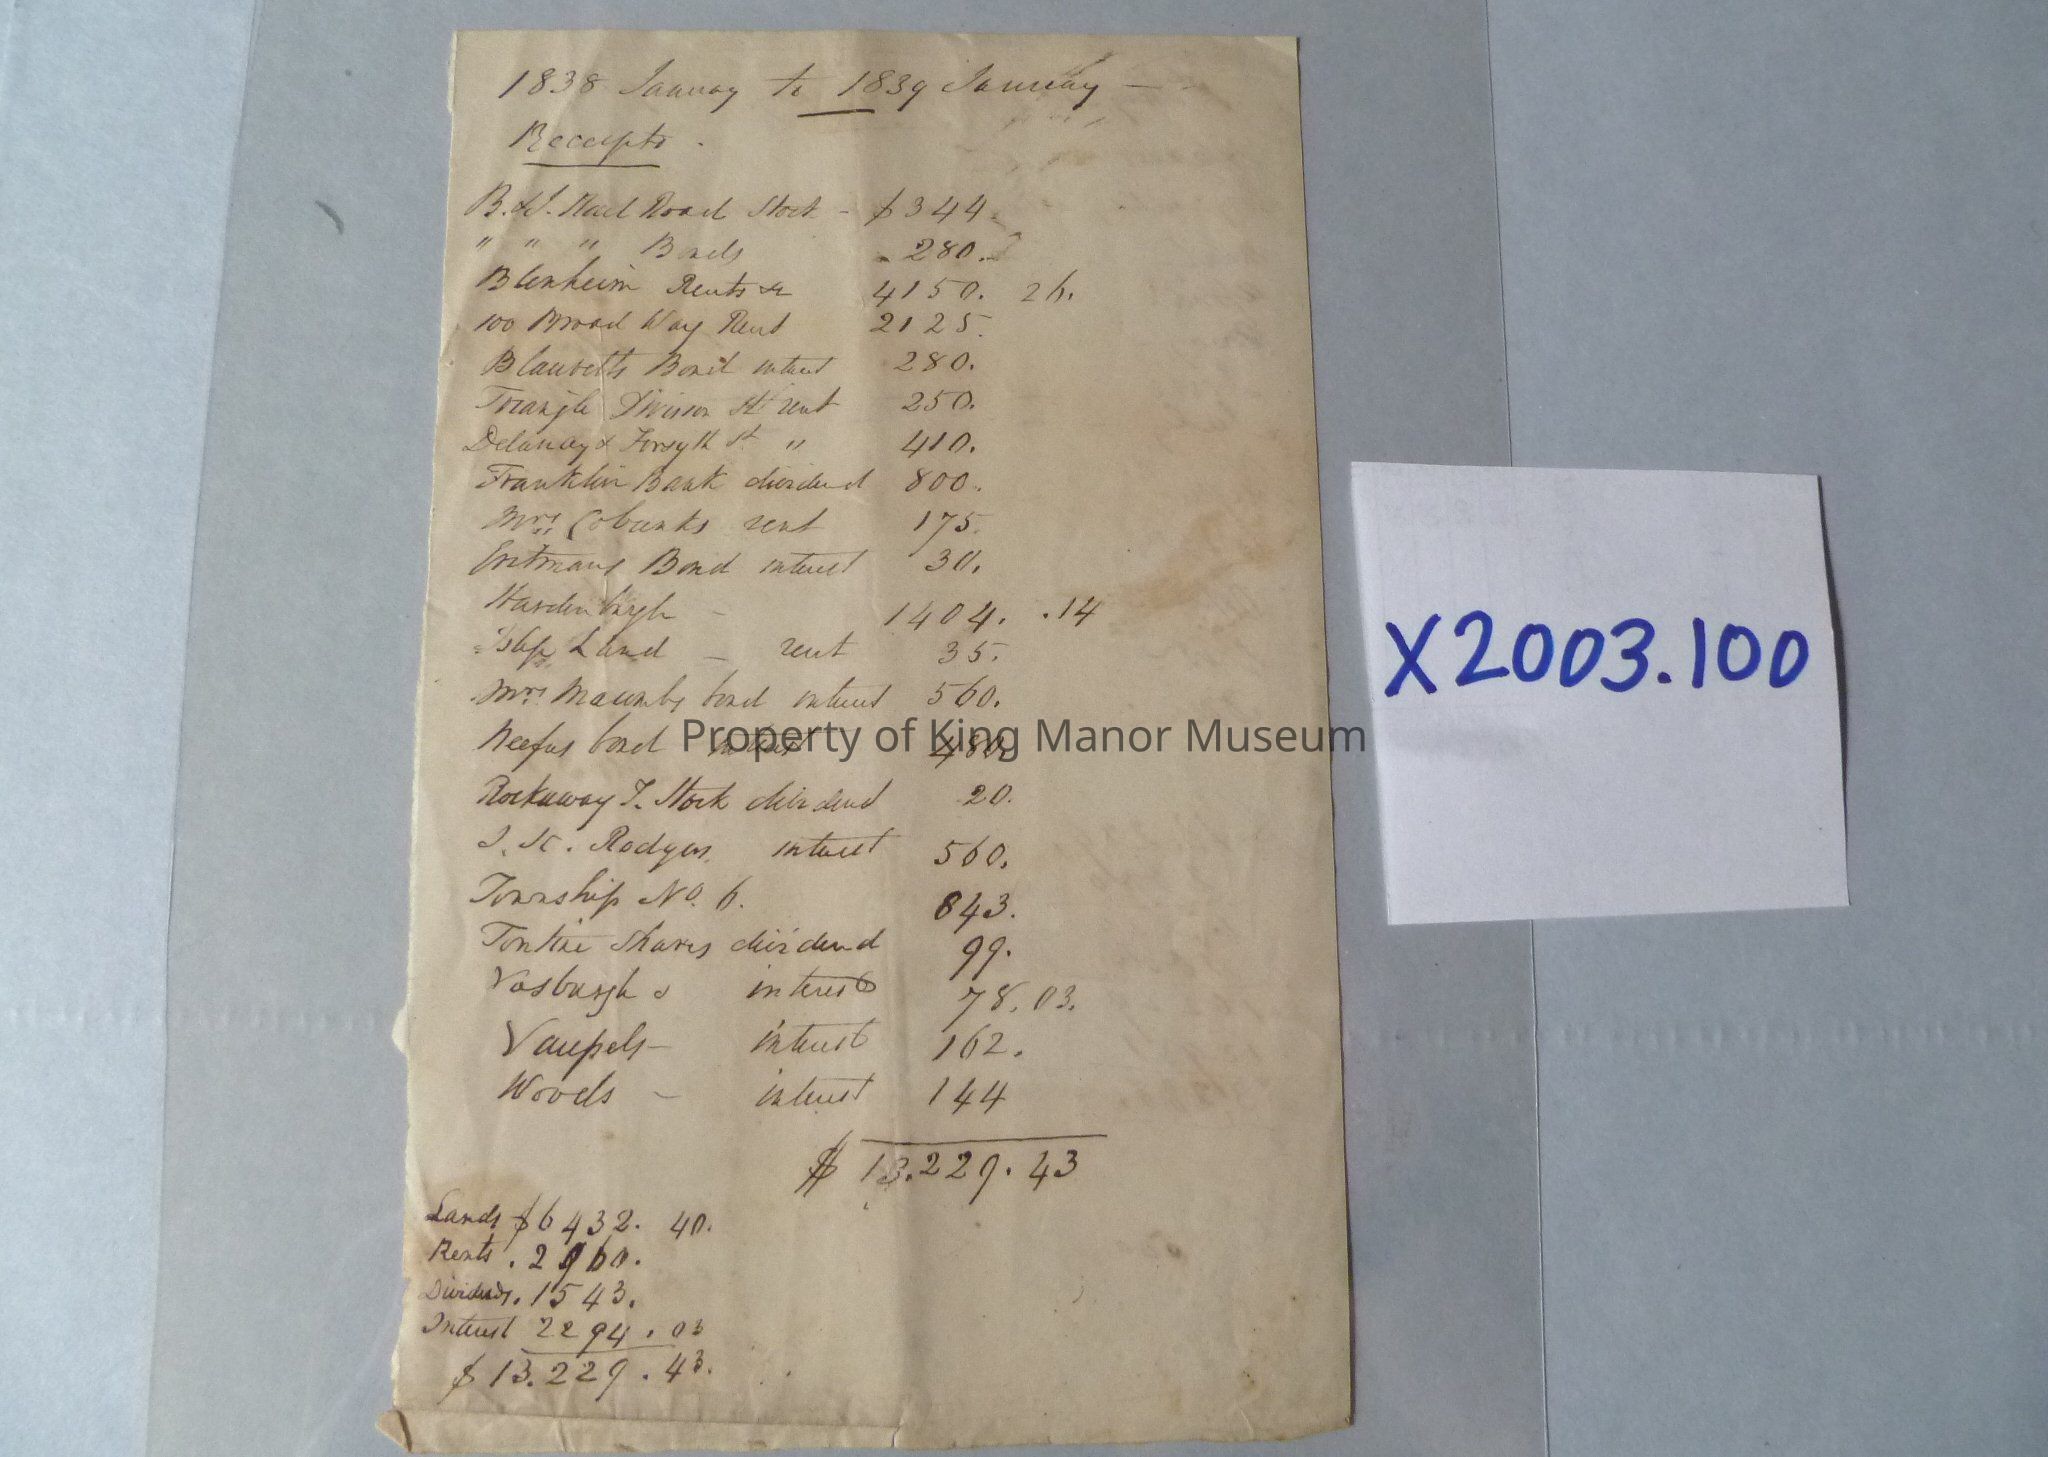 1838 January to 1839 January —
Receipts.
B. & J. Rail Road Stock - $344.
" " " Bonds 280.
Blenheim Rents &c 4150. 26.
100 Broad Way Rent 2125.
Blauvelts Bond interest 280.
Triangle Division St rent 250.
Delancy & Forsyth St. " 410.
Franklin Bank dividend 800.
Mrs Cobanks rent 175.
Bond interest 30.
Hardenburgh - 1404. .14
Islip Land — rent 35.
Mrs Macombs bond interest 560.
Neefus bond interest 480.
Rockaway T. Stock dividend 20.
Rodgers interest 560.
Township No. 6. 843.
Tontine shares dividend 99.
Vosburghs interest 78.03.
Vaupels — interest 162.
Woods — interest 144
$ 13.229.43
Lands $6432. 40.
Rents . 2960.
Dividends. 1543.
Interest 2294. 03
$ 13.229. 43.
X2003.100
Property of King Manor Museum